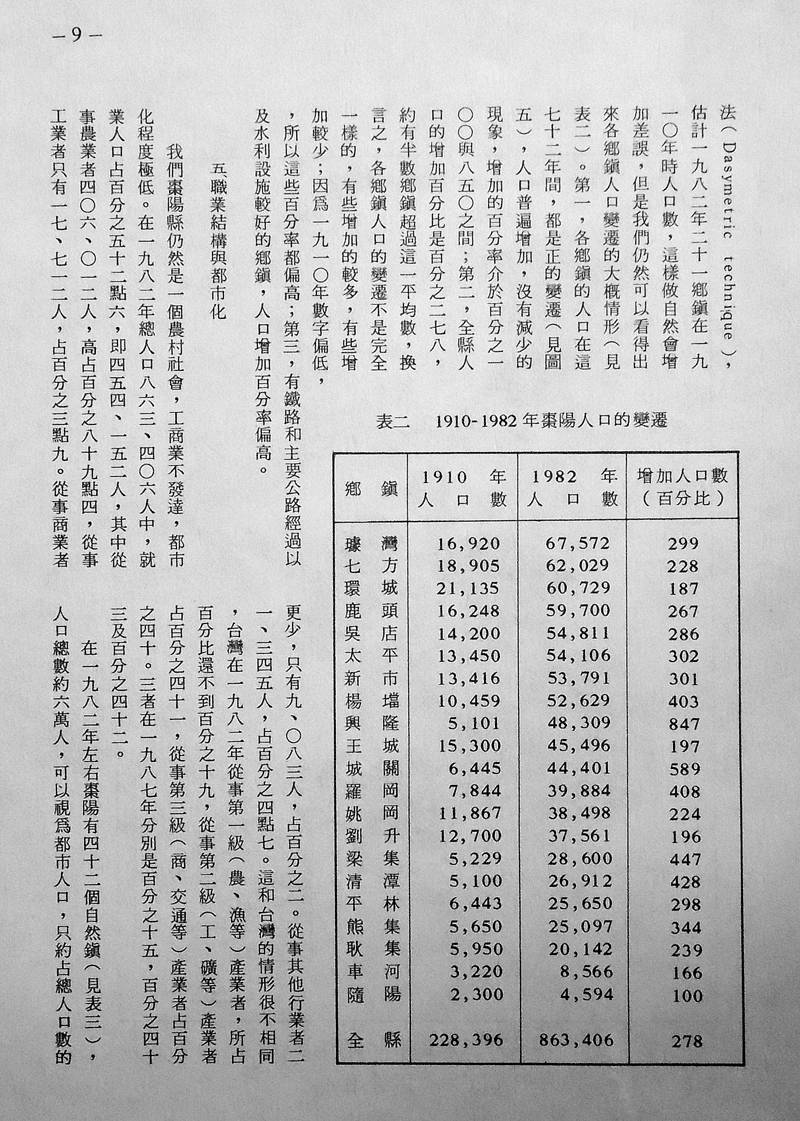 －9－
法（Dasymetric technique），
估計一九八二年二十一鄉鎮在一九
一〇年時人口數，這樣做自然會增
加差誤，但是我們仍然可以看得出
來各鄉鎮人口變遷的大概情形（見
表二）。第一，各鄉鎮的人口在這
七十二年間，都是正的變遷（見圖
五），人口普遍增加，沒有減少的
現象，增加的百分率介於百分之一
〇〇與八五〇之間；第二，全縣人
口的增加百分比是百分之二七八，
約有半數鄉鎮超過這一平均數，換
言之，各鄉鎮人口的變遷不是完全
一樣的，有些增加的較多，有些增
加較少；因為一九一〇年數字偏低，
，所以這些百分率都偏高；第三，有鐵路和主要公路經過以
及水利設施較好的鄉鎮，人口增加百分率偏高。
五、職業結構與都市化
我們棗陽縣仍然是一個農村社會，工商業不發達，都市
化程度極低。在一九八二年總人口八六三、四〇六人中，就
業人口占百分之五十二點六，即四五四、一五二人，其中從
事農業者四〇六、〇一二人，高占百分之八十九點四，從事
工業者只有一七、七一二人，占百分之三點九。從事商業者
表二 1910-1982年棗陽人口的變遷
鄉鎮 1910年人口數 1982年人口數 增加人口數（百分比）
璩灣 16,920 67,572 299
七方 18,905 62,029 228
環城 21,135 60,729 187
鹿頭 16,248 59,700 267
吳店 14,200 54,811 286
太平 13,450 54,106 302
新市 13,416 53,791 301
楊壋 10,459 52,629 403
興隆 5,101 48,309 847
王城 15,300 45,496 197
城關 6,445 44,401 589
羅岡 7,844 39,884 408
姚岡 11,867 38,498 224
劉升 12,700 37,561 196
梁集 5,229 28,600 447
清潭 5,100 26,912 428
平林 6,443 25,650 298
熊集 5,650 25,097 344
耿集 5,950 20,142 239
車河 3,220 8,566 166
隨陽 2,300 4,594 100
全縣 228,396 863,406 278
更少，只有九、〇八三人，占百分之二。從事其他行業者二
一、三四五人，占百分之四點七。這和台灣的情形很不相同
，台灣在一九八二年從事第一級（農、漁等）產業者，所占
百分比還不到百分之十九，從事第二級（工、礦等）產業者
占百分之四十一，從事第三級（商、交通等）產業者占百分
之四十。三者在一九八七年分別是百分之十五，百分之四十
三及百分之四十二。
在一九八二年左右棗陽有四十二個自然鎮（見表三），
人口總數約六萬人，可以視為都市人口，只約占總人口數的